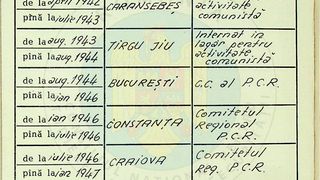 de la april 1942
pînă la iulie 1943
CARANSEBEȘ
activitate
comunistă
de la aug. 1943
pînă la aug. 1944
TÎRGU JIU
Internat în
lagăr pentru
activitate
comunistă
de la aug. 1944
pînă la ian 1946
BUCUREȘTI
C.C. al P.C.R.
de la ian 1946
pînă la iulie 1946
CONSTANȚA
Comitetul
Regional
P.C.R.
de la iulie 1946
pînă la ian. 1947
CRAIOVA
Comitetul
Reg. P.C.R.